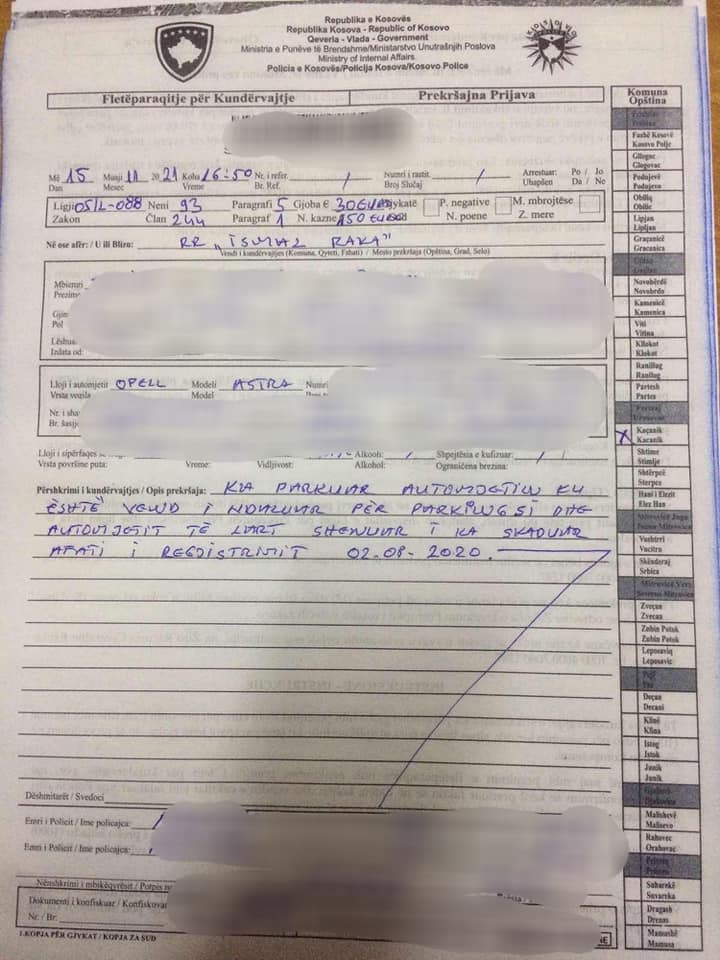 Republika e Kosovës
Republika Kosova - Republic of Kosovo
Qeveria - Vlada - Government
Ministria e Punëve të Brendshme/Ministarstvo Unutrašnjih Poslova
Ministry of Internal Affairs
Policia e Kosovës/Policija Kosova/Kosovo Police
Fletëparaqitje për Kundërvajtje Prekršajna Prijava
Më 15 Muaji 11 2021 Koha 16:50 Nr. i refer. / Numri i rastit. / Arrestuar: Po / Jo
Dan Mesec Vreme Br. Ref. Broj Slučaj Uhapšen Da / Ne
Ligji 05/L-088 Neni 93 Paragrafi 5 Gjoba € 30 EURO P. negative M. mbrojtëse
Zakon Član 244 Paragraf 1 N. kazne 150 EURO N. poene Z. mere
Në ose afër: / U ili Blizu: RR "ISMAIL RAKA"
Vendi i kundërvajtjes (Komuna, Qyteti, Fshati) / Mesto prekršaja (Opština, Grad, Selo)
Mbiemri
Prezime
Pol
Lëshuar
Izdata od:
Lloji i automjetit OPELL Modeli ASTRA Numri
Vrsta vozila Model
Nr. i
Br. šasije
Lloji i sipërfaqes së Alkooli: / Shpejtësia e kufizuar: /
Vrsta površine puta: Vreme: Vidljivost: Alkohol: Ograničena brzina:
Përshkrimi i kundërvajtjes / Opis prekršaja: KA PARKUAR AUTOMJETIN KU
ËSHTË VEND I NDALUAR PËR PARKING SI DHE
AUTOMJETIT TË LART SHENUAR I KA SKADUAR
AFATI I REGJISTRIMIT 02-08-2020.
Dëshmitarët / Svedoci
Emri i Policit / Ime policajca:
Emri i Policit / Ime policajca:
Nënshkrimi i mbikëqyrësit / Potpis
Dokumenti i konfiskuar / Konfiskovan
Nr. / Br.
1.KOPJA PËR GJYKAT / KOPJA ZA SUD
Komuna
Opština
Fushë Kosovë
Kosovo Polje
Gllogoc
Glogovac
Podujevë
Podujevo
Obiliq
Obilic
Lipjan
Lipljan
Graçanicë
Gracanica
Novobërdë
Novobrdo
Kamenicë
Kamenica
Viti
Vitina
Kllokot
Klokot
Ranillug
Ranilug
Partesh
Partes
Kaçanik
Kacanik
Shtime
Stimlje
Shtërpcë
Sterpce
Hani i Elezit
Elez Han
Vushtrri
Vucitrn
Skënderaj
Srbica
Zveçan
Zvecan
Zubin Potok
Zubin Potok
Leposaviq
Leposavic
Deçan
Decani
Klinë
Klina
Istog
Istok
Junik
Junik
Malishevë
Malisevo
Rahovec
Orahovac
Suharekë
Suvareka
Dragash
Drenas
Mamushë
Mamusa